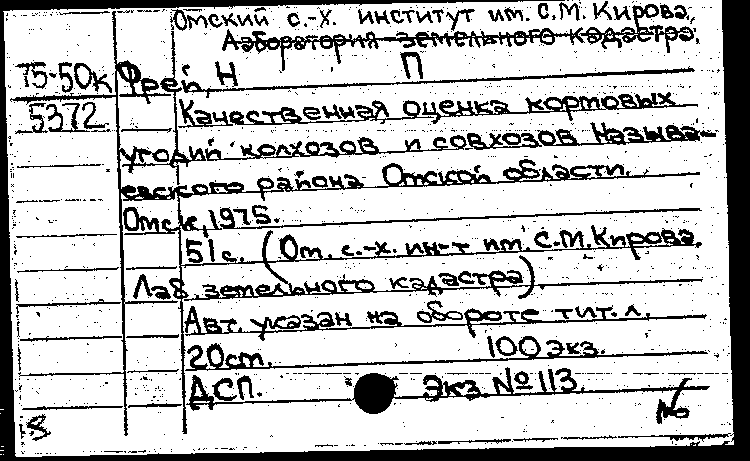 Омский с.-х. институт им. С.М. Кирова,
Лаборатория земельного кадастра.
75-50к Фрей, Н П
5372 Качественная оценка кормовых
угодий колхозов и совхозов Называ-
евского района Омской области.
Омск, 1975.
51 с. (Ом. с.-х. ин-т им. С.М. Кирова.
Лаб. земельного кадастра).
Авт. указан на обороте тит. л.
20 см. 100 экз.
ДСП. Экз. № 113.
8